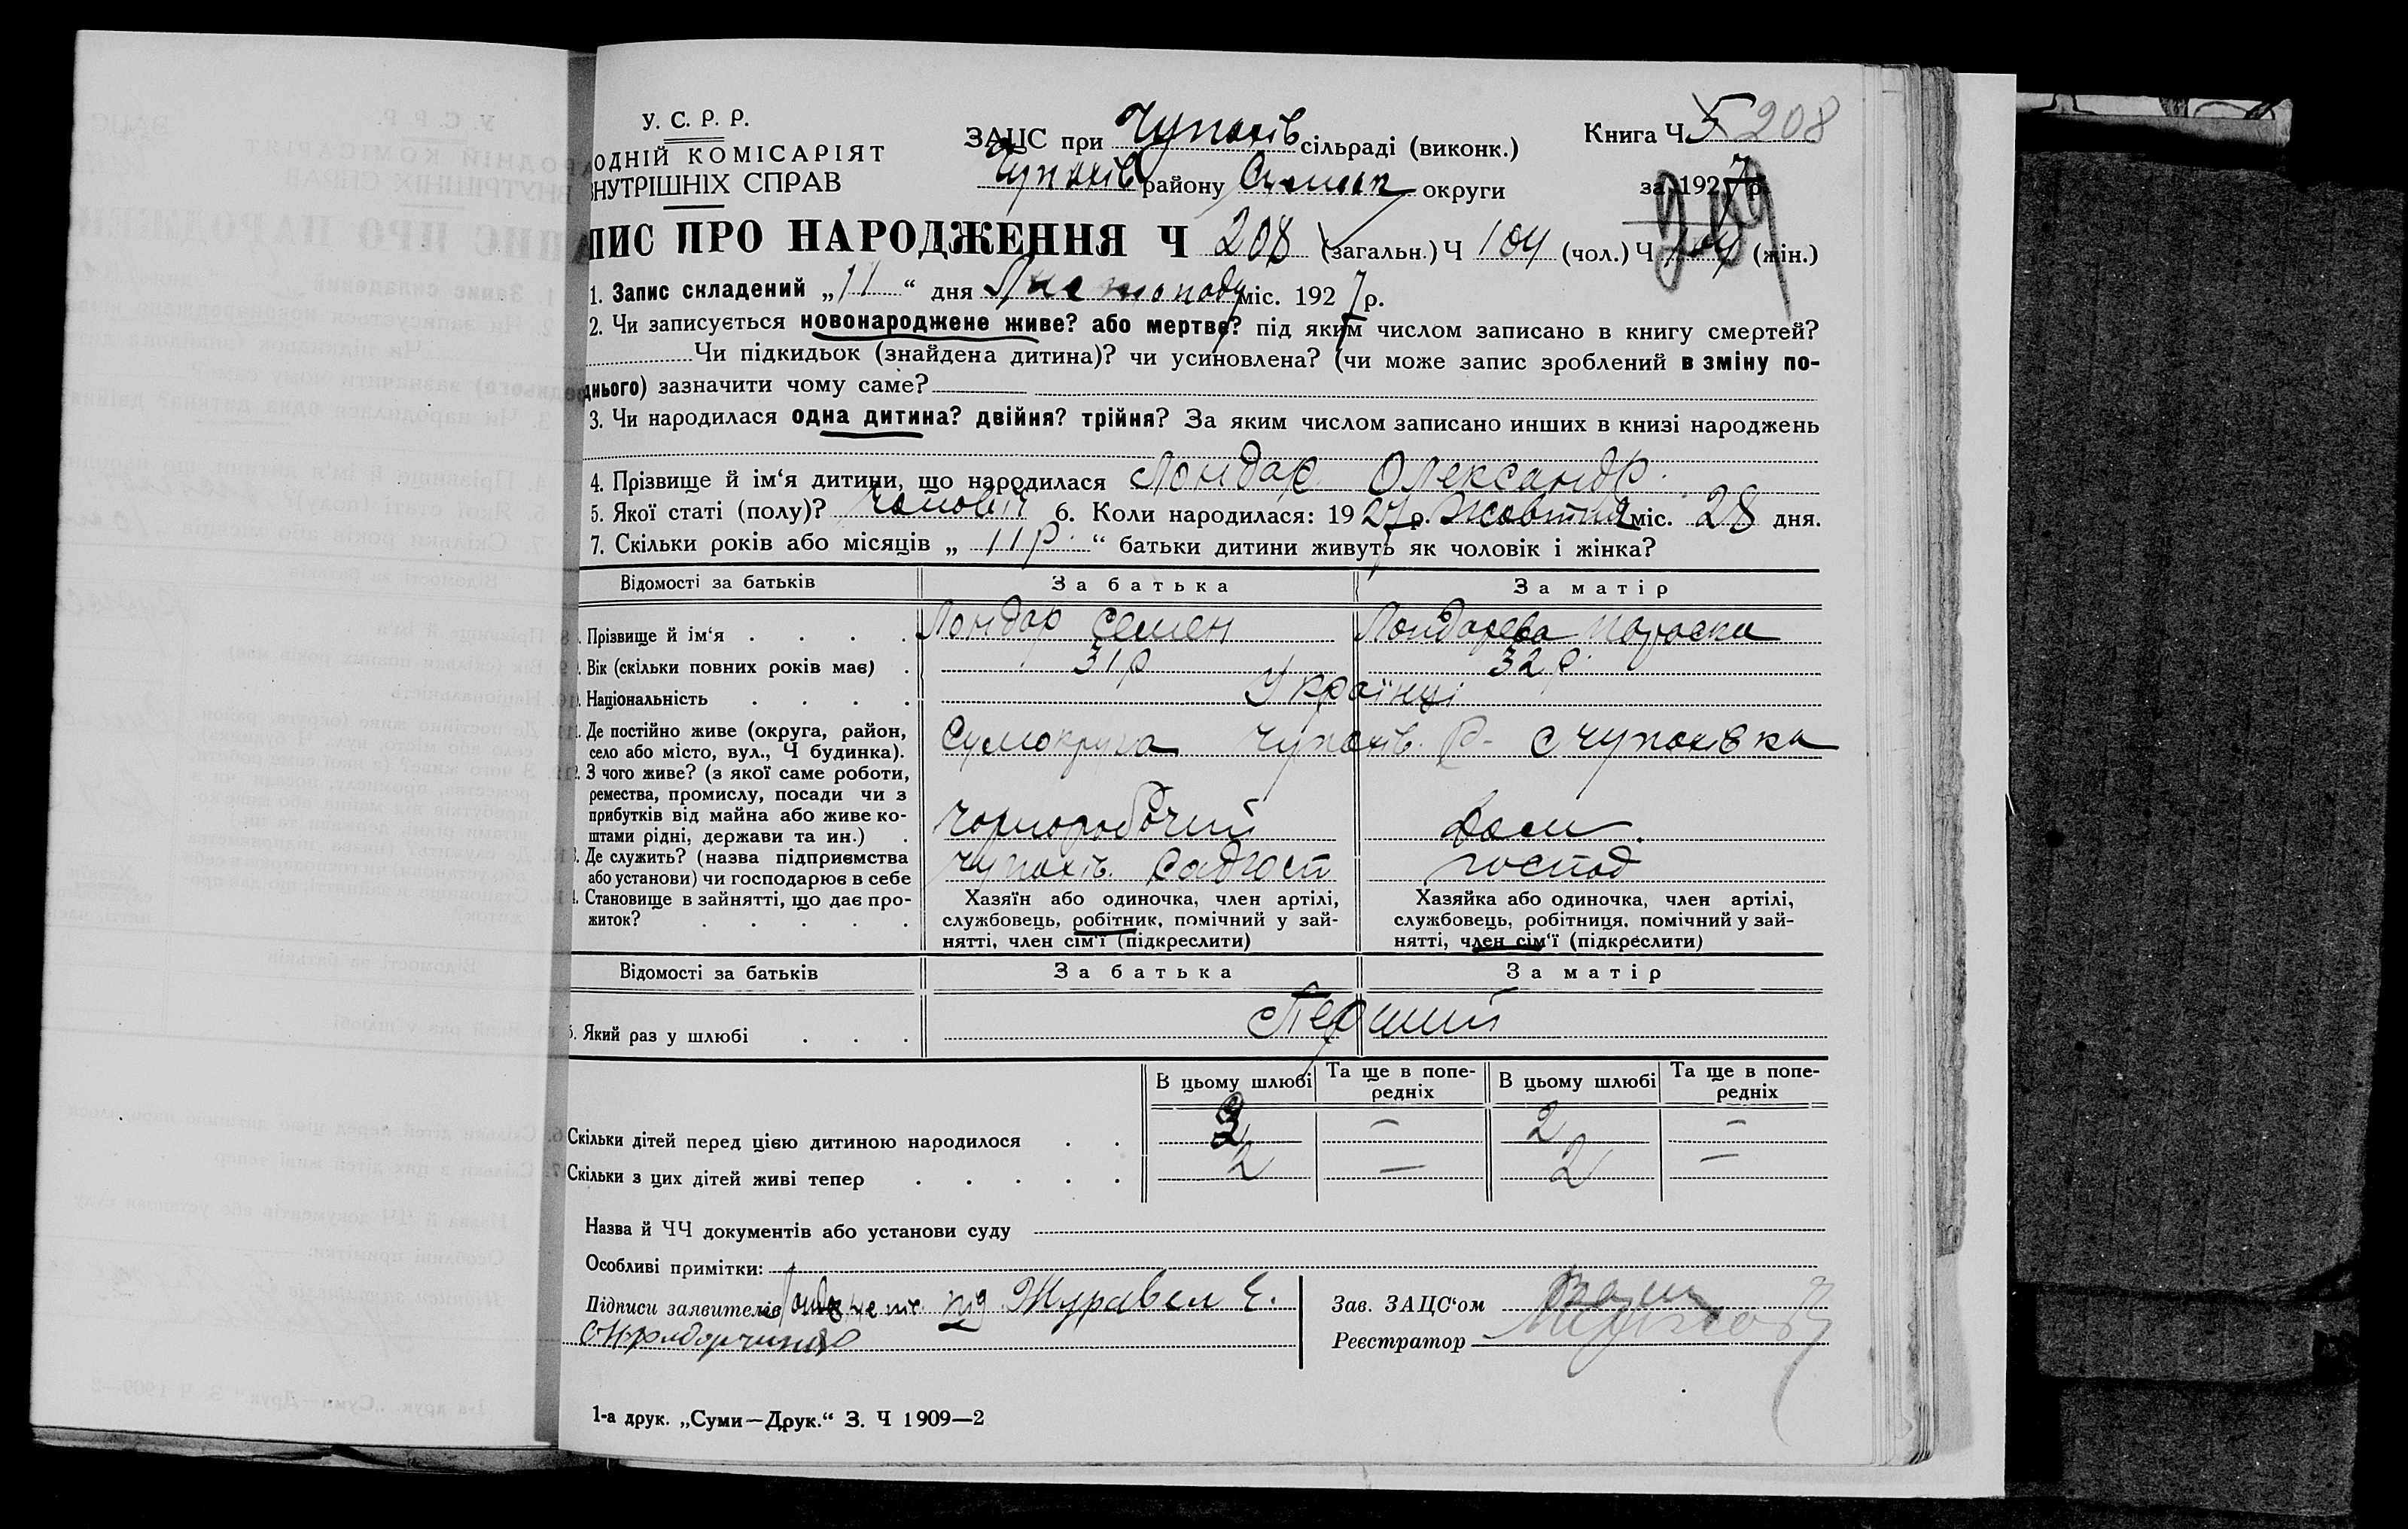 У. С. Р. Р.
ОДНІЙ КОМІСАРІЯТ
ВНУТРІШНІХ СПРАВ
ЗАЦС при Чупахів сільраді (виконк.)
Чупахів району Сумськ округи
Книга Ч 5 208
за 1927 р.
ПИС ПРО НАРОДЖЕННЯ Ч 208 (загальн.) Ч 104 (чол.) Ч (жін.)
1. Запис складений „11“ дня Листопаду міс. 1927 р.
2. Чи записується новонароджене живе? або мертве? під яким числом записано в книгу смертей?
Чи підкидьок (знайдена дитина)? чи усиновлена? (чи може запис зроблений в зміну по-
днього) зазначити чому саме?
3. Чи народилася одна дитина? двійня? трійня? За яким числом записано инших в книзі народжень
4. Прізвище й ім‘я дитини, що народилася Лондар Олександр.
5. Якої статі (полу)? чоловіч 6. Коли народилася: 1927 р. Жовтня міс. 28 дня.
7. Скільки років або місяців „11 р.“ батьки дитини живуть як чоловік і жінка?
Відомості за батьків За батька За матір
Прізвище й ім‘я . . . . Лондар Семен Лондарева Параска
Вік (скільки повних років має) . 31 р 32 р.
Національність . . . . Українці
Де постійно живе (округа, район,
село або місто, вул., Ч будинка). Сумокруга Чупахів. Р- с Чупахівка
З чого живе? (з якої саме роботи,
ремества, промислу, посади чи з
прибутків від майна або живе ко-
штами рідні, держави та ин.) . Чорноробочий Дом.
Де служить? (назва підприємства
або установи) чи господарює в себе Чупахів. Радгосп господ
Становище в зайнятті, що дає про-
житок? . . . . .
Хазяїн або одиночка, член артілі,
службовець, робітник, помічний у зай-
нятті, член сім‘ї (підкреслити)
Хазяйка або одиночка, член артілі,
службовець, робітниця, помічний у зай-
нятті, член сім‘ї (підкреслити)
Відомості за батьків За батька За матір
Який раз у шлюбі . . . Перший
В цьому шлюбі Та ще в попе-
редніх В цьому шлюбі Та ще в попе-
редніх
Скільки дітей перед цією дитиною народилося . . 2 — 2 —
Скільки з цих дітей живі тепер . . . . . 2 — 2 —
Назва й ЧЧ документів або установи суду
Особливі примітки:
Підписи заявителів під Журавел Є.
Зав. ЗАЦС‘ом
Реєстратор
1-а друк. „Суми—Друк.“ З. Ч 1909—2